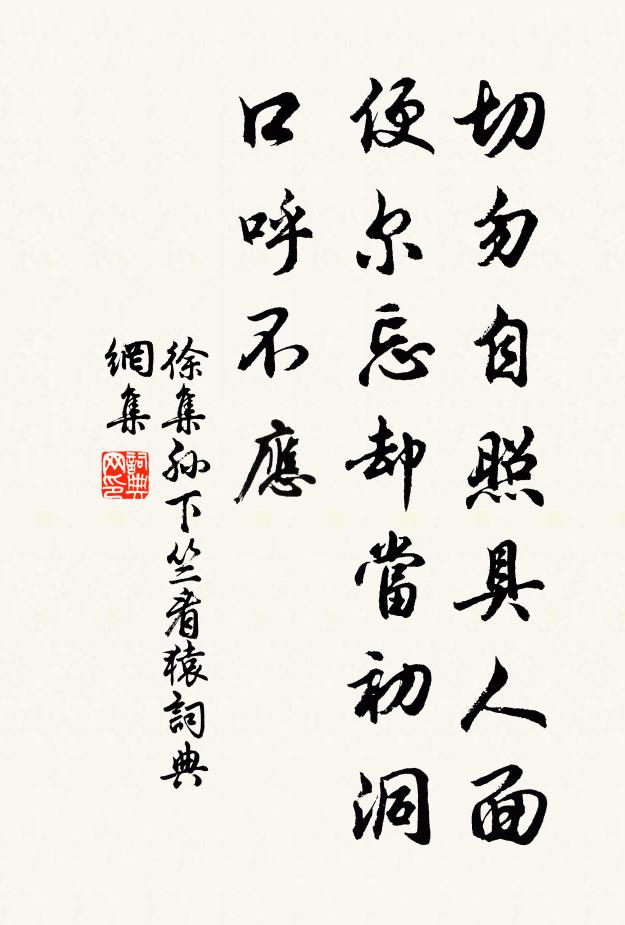 切勿自照具人面
便尔忘却當初洞
口呼不應
徐集孙下竺看猿詞典
網集
詞典
网印